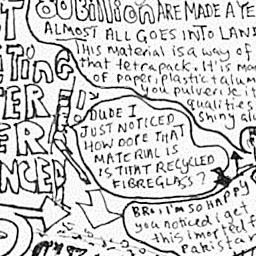 80Billion ARE MADE A YE
ALMOST ALL GOES INTO LAN
This material is a way of
that tetrapack. It is mo
of paper, plastic, + alum
you pulverise it
qualities
shiny al
iTing
TER
ER
NCED
DUDE I
JUST NOTICED
HOW DOPE THAT
MATERIAL IS
IS THAT RECYCLED
FIBREGLASS?
BRO! I'm so HAPPY
you noticed i get
this imported f
Pakistan